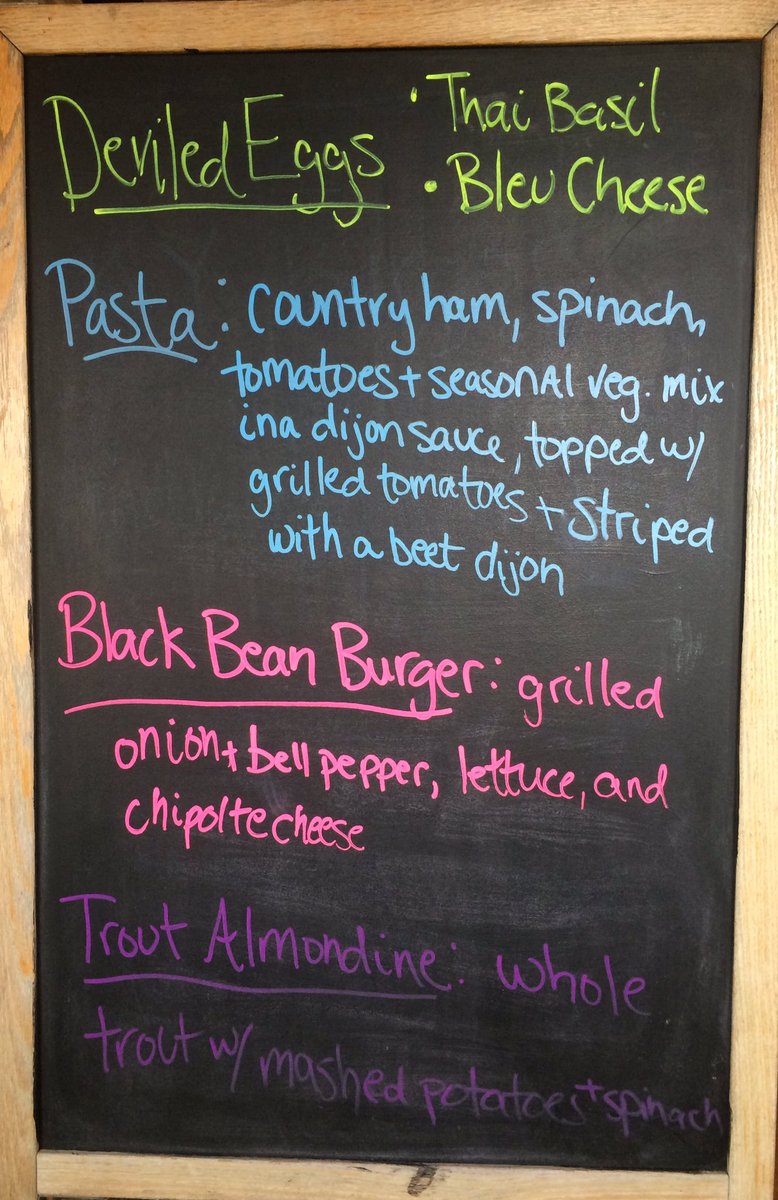 Deviled Eggs • Thai Basil
• Bleu Cheese
Pasta: country ham, spinach,
tomatoes + seasonAl veg. mix
in a dijon sauce, topped w/
grilled tomatoes + striped
with a beet dijon
Black Bean Burger: grilled
onion + bell pepper, lettuce, and
chipolte cheese
Trout Almondine: whole
trout w/ mashed potatoes + spinach